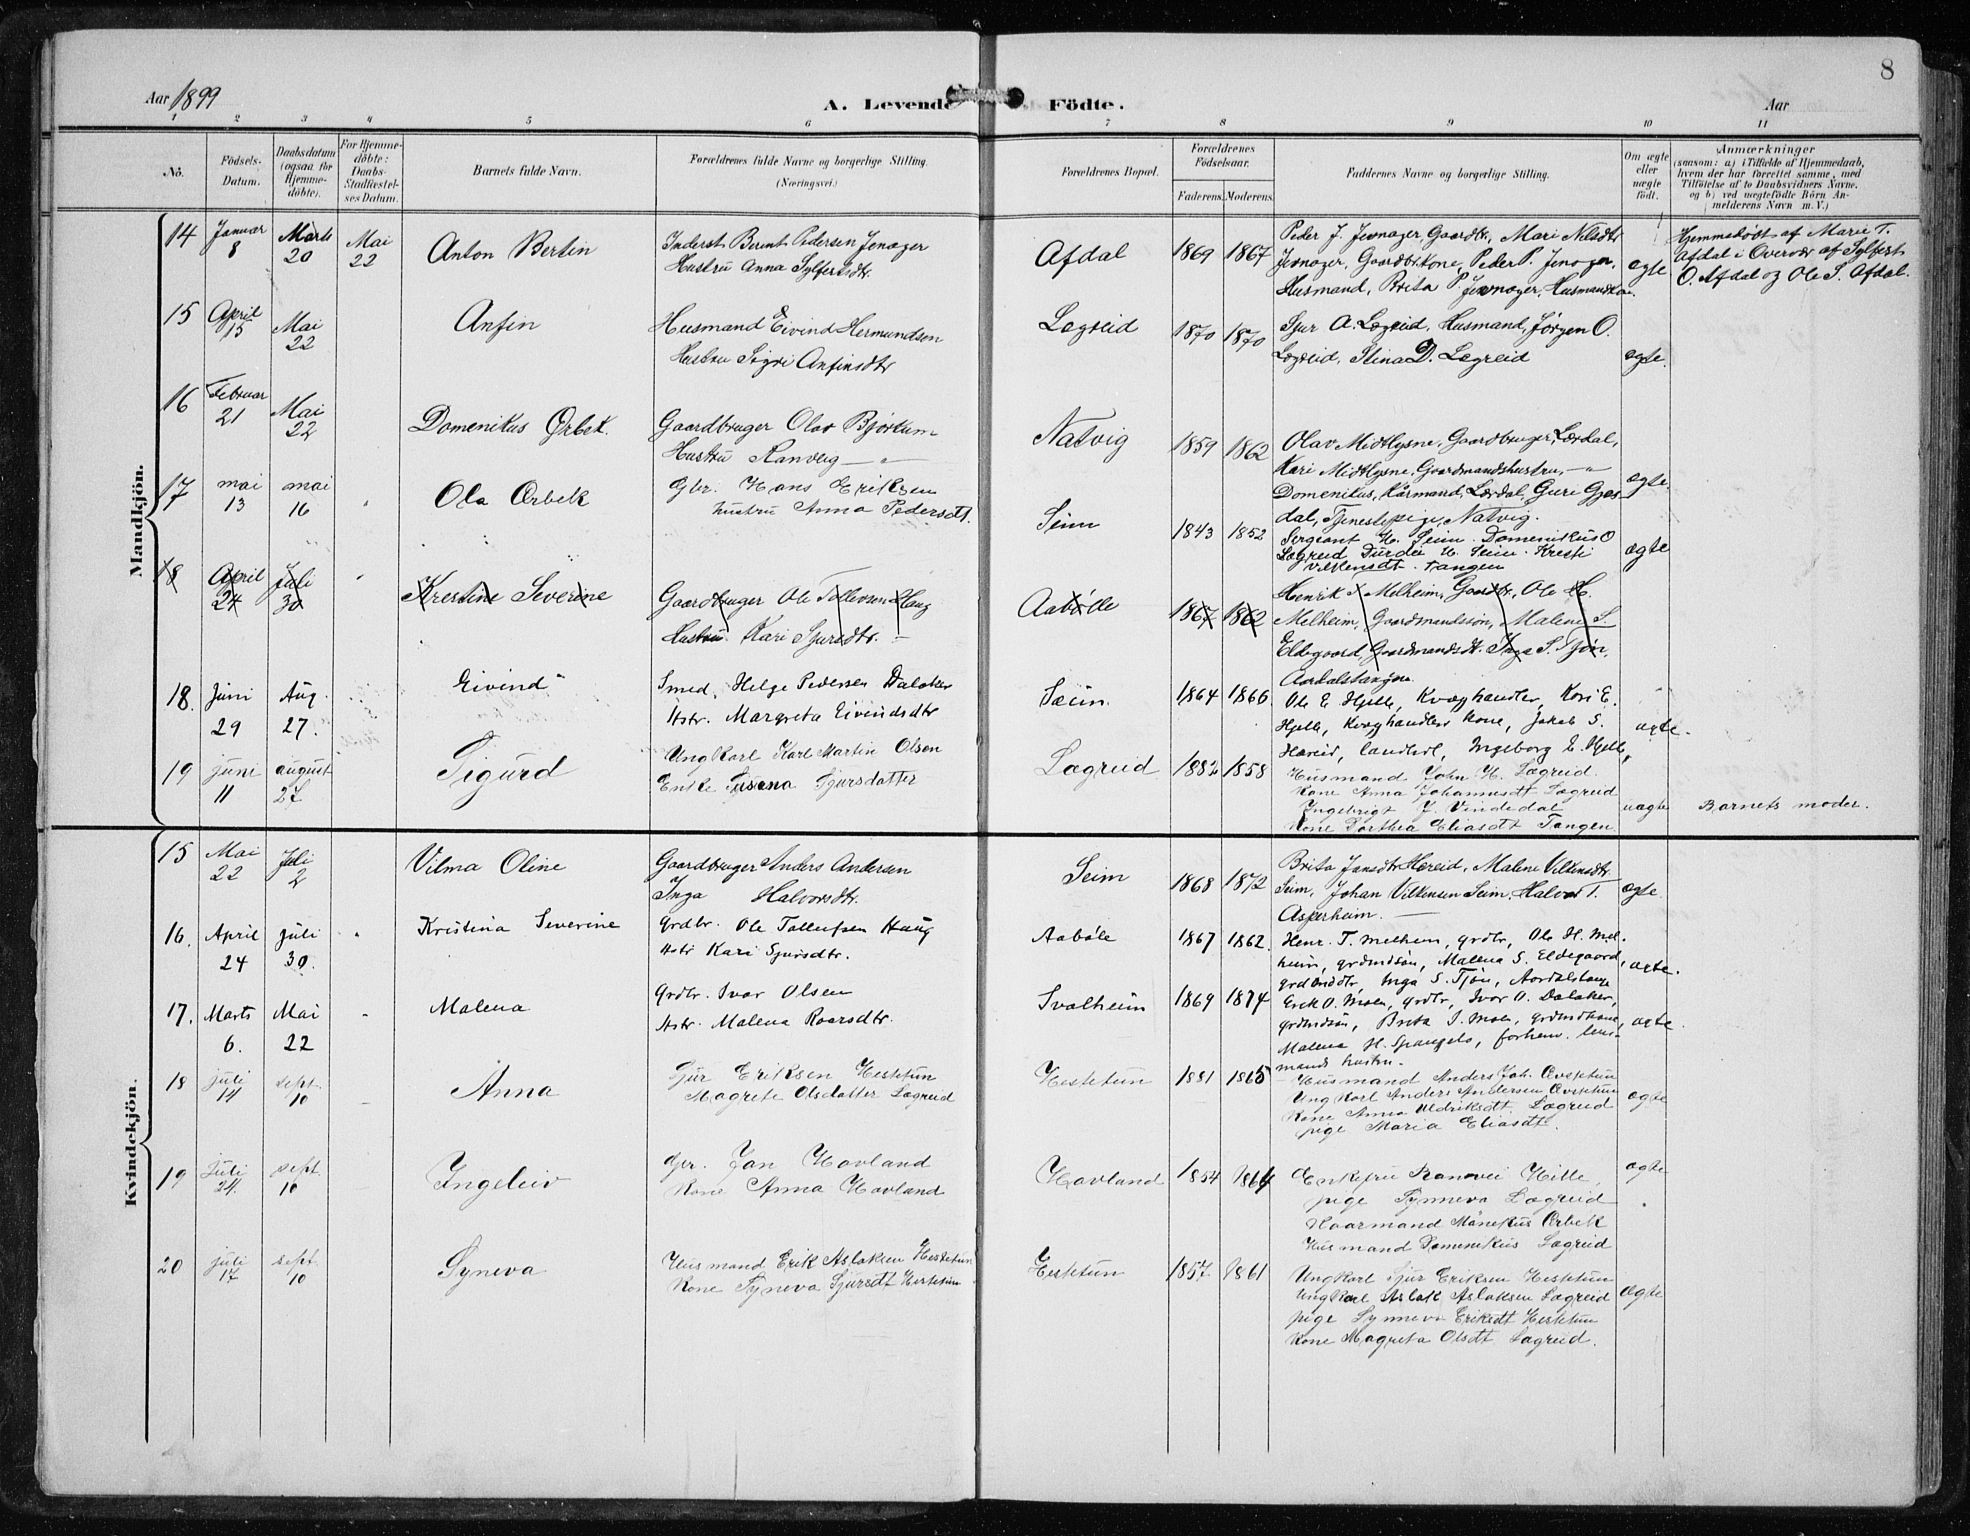 8
Aar 1899
A. Levende Födte.
Aar
1 2 3 4 5 6 7 8 9 10 11
No.
Födsels-Datum.
Daabsdatum (ogsaa for Hjemme-döbte).
For Hjemme-döbte: Daabs-Stadfæstel-ses Datum.
Barnets fulde Navn.
Forældrenes fulde Navne og borgerlige Stilling. (Næringsvei.)
Forældrenes Bopæl.
Forældrenes Födselsaar.
Faderens. Moderens.
Faddernes Navne og borgerlige Stilling.
Om ægte eller uægte födt.
Anmærkninger
(saasom: a) i Tilfælde af Hjemmedaab,
hvem der har forrettet samme, med
Tilföielse af to Daabsvidners Navne,
og b) ved uægtefödte Börn An-
melderens Navn m. V.)
Mandkjön.
14 Januar 8 Marts 20 Mai 22 Anton Bertin
Inderst Bernt Pedersen Jevnager
Hustru Anna Sylfestsdtr.
Afdal 1869 1867
Peder J. Jevnager Gaardbr., Mari Nilsdtr
Jevnager, Gaardbrkone, Peder P. Jevnager,
Husmand, Brita P. Jevnager, Husmandkone.
ægte
Hjemmedöbt af Marie T.
Afdal i Overvær af Sylfest
O. Afdal og Ole S. Afdal.
15 April 15 Mai 22 Anfin
Husmand Eivind Hermundsen
Hustru Sigri Anfinsdtr
Lægreid 1870 1870
Sjur A. Lægreid, Husmand, Jørgen O.
Lægreid, Stina D. Lægreid
ægte.
16 Februar 21 Mai 22 Domenikus Ørbek.
Gaardbruger Olav Bjørkum
Hustru Ranveig — " —
Natvig 1859 1862
Olav Midtlysne, Gaardbruger, Lærdal,
Kari Midtlysne, Gaardmandshustru, — "
Domenikus, Kårmand, Lærdal, Guri Gjes-
dal, Tjenestepige, Natvig.
ægte.
17 mai 13 mai 16 Ola Ørbek
Gbr. Hans Eriksen
hustru Anna Pedersdt.
Seim 1843 1852
Sergeant H. Seim. Domenikus O
Lægreid Durdei H. Seim. Kresti
Vilkensdt. Tangen
ægte
18 April 24 Juli 30 Krestine Severine
Gaardbruger Ole Tollevsen Haug
Hustru Kari Sjursdtr. —
Aabøle 1867 1862
Henrik T. Melheim, Gaardbr, Ole H.
Melheim, Gaardmandssön, Malene S.
Eldegaard, Gaardmandsdt. Inga S. Tjön,
Aardalstangen.
18. Juni 29 Aug. 27. Eivind
Smed, Helge Pedersen Dalaker
Hstr. Margreta Eivindsdtr
Seim. 1864 1866
Ole E. Hjelle, Kvæghandler, Kari E.
Hjelle, Kvæghandlers kone, Jakob S.
Hæreid, landhdl, Ingeborg E. Hjelle,
ægte.
19 juni 11 august 27 Sigurd
Ungkarl Karl Martin Olsen
Enke Susana Sjursdatter
Lægreid 1882 1858
Husmand John H. Lægreid.
Kone Anna Johannesdt Lægreid
Ingebrigt J. Vindedal
Kone Dorthea Eliasdt Tangen
uægte Barnets moder.
Kvindekjön.
15 Mai 22 Juli 2 Vilma Oline
Gaardbruger Anders Andersen
Inga Halvorsdtr.
Seim 1868 1872
Brita Jansdtr Hereid, Malene Vilkensdtr
Seim, Johan Vilkensen Seim, Halvor T.
Asperheim. —
ægte.
16. April 24 Juli 30. Kristina Severine
Grdbr. Ole Tollefsen Haug
Hstr Kari Sjursdtr.
Aabøle 1867 1862.
Henr. T. Melheim, grdbr, Ole H. Mel-
heim, grdmdsön, Malena S. Eldegaard,
grdmdsdtr, Inga S. Tjön, Aardalstangen
ægte.
17. Marts 6. Mai 22 Malena
Grdbr. Ivar Olsen
Hstr. Malena Roarsdtr.
Svalheim 1869 1874
Erik O. Moen, grdbr, Ivar O. Dalaker,
grdmdsön, Brita I. Moen, grdmdkone,
Malena H. Spangelo, forhenv. lens-
mands hustru.
ægte.
18 juli 14 sept. 10 Anna
Sjur Eriksen Hestetun
Magrete Olsdatter Lægreid
Hestetun 1881 1865
Husmand Anders Joh. Øvstetun
Ungkarl Anders Andersen Øvstetun
Kone Anna Uldriksdt Lægreid
pige Maria Eliasdt.
ægte
19 Juli 24. sept. 10 Ingeleiv
Gbr. Jan Hovland
Kone Anna Hovland
Hovland 1854 1864
Enkefru Ranvei Hille,
pige Synneva Lægreid
Kaarmand Månekus Ørbek
Husmand Domenikus Lægreid
ægte
20 juli 17 sept. 10 Syneva
Husmand Erik Aslaksen Hestetun
Kone Synneva Sjursdt Hestetun
Hestetun 1857 1861
Ungkarl Sjur Eriksen Hestetun
Ungkarl Aslak Aslaksen Lægreid
pige Synneva Eriksdt Hestetun
Kone Magreta Olsdt Lægreid.
ægte